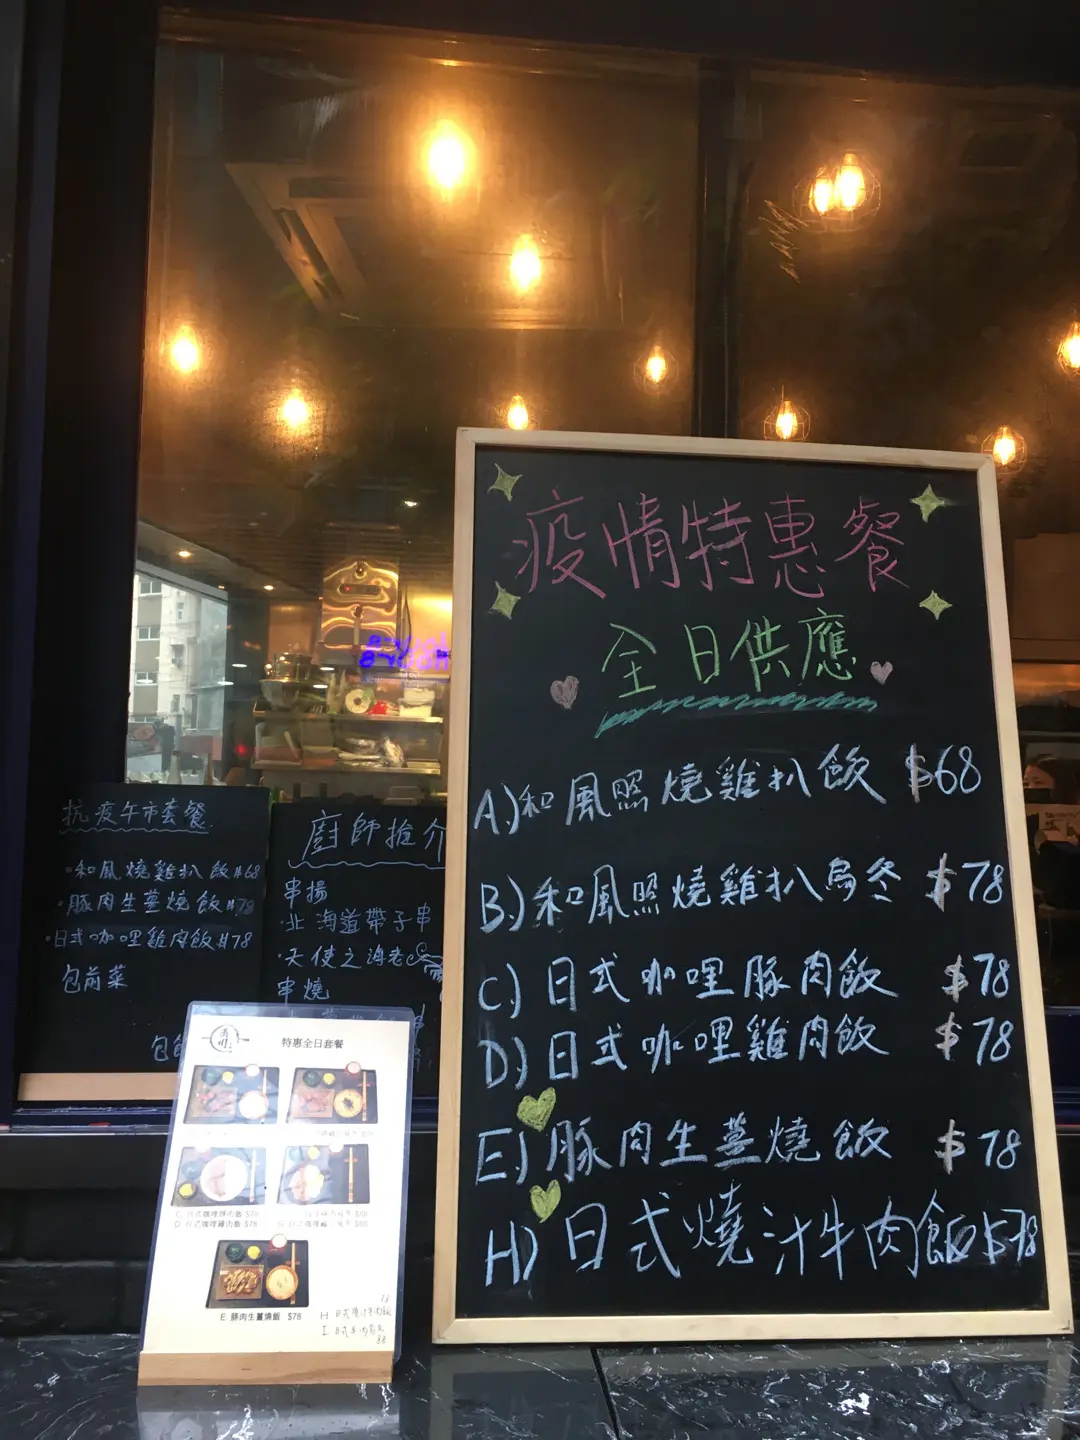 疫情特惠餐
全日供應
A.)和風照燒雞扒飯 $68
B.)和風照燒雞扒烏冬 $78
C.) 日式咖哩豚肉飯 $78
D.) 日式咖哩雞肉飯 $78
E.) 豚肉生薑燒飯 $78
H.) 日式燒汁牛肉飯 $78
抗疫午市套餐
·和風燒雞扒飯 $68
·豚肉生薑燒飯 $78
·日式咖哩雞肉飯 $78
包前菜
廚師推介
串揚
·北海道帶子串
·天使之海老
串燒
特惠全日套餐
C. 日式咖哩豚肉飯 $78
D. 日式咖哩雞肉飯 $78
E. 豚肉生薑燒飯 $78
H 日式燒汁牛肉飯
78